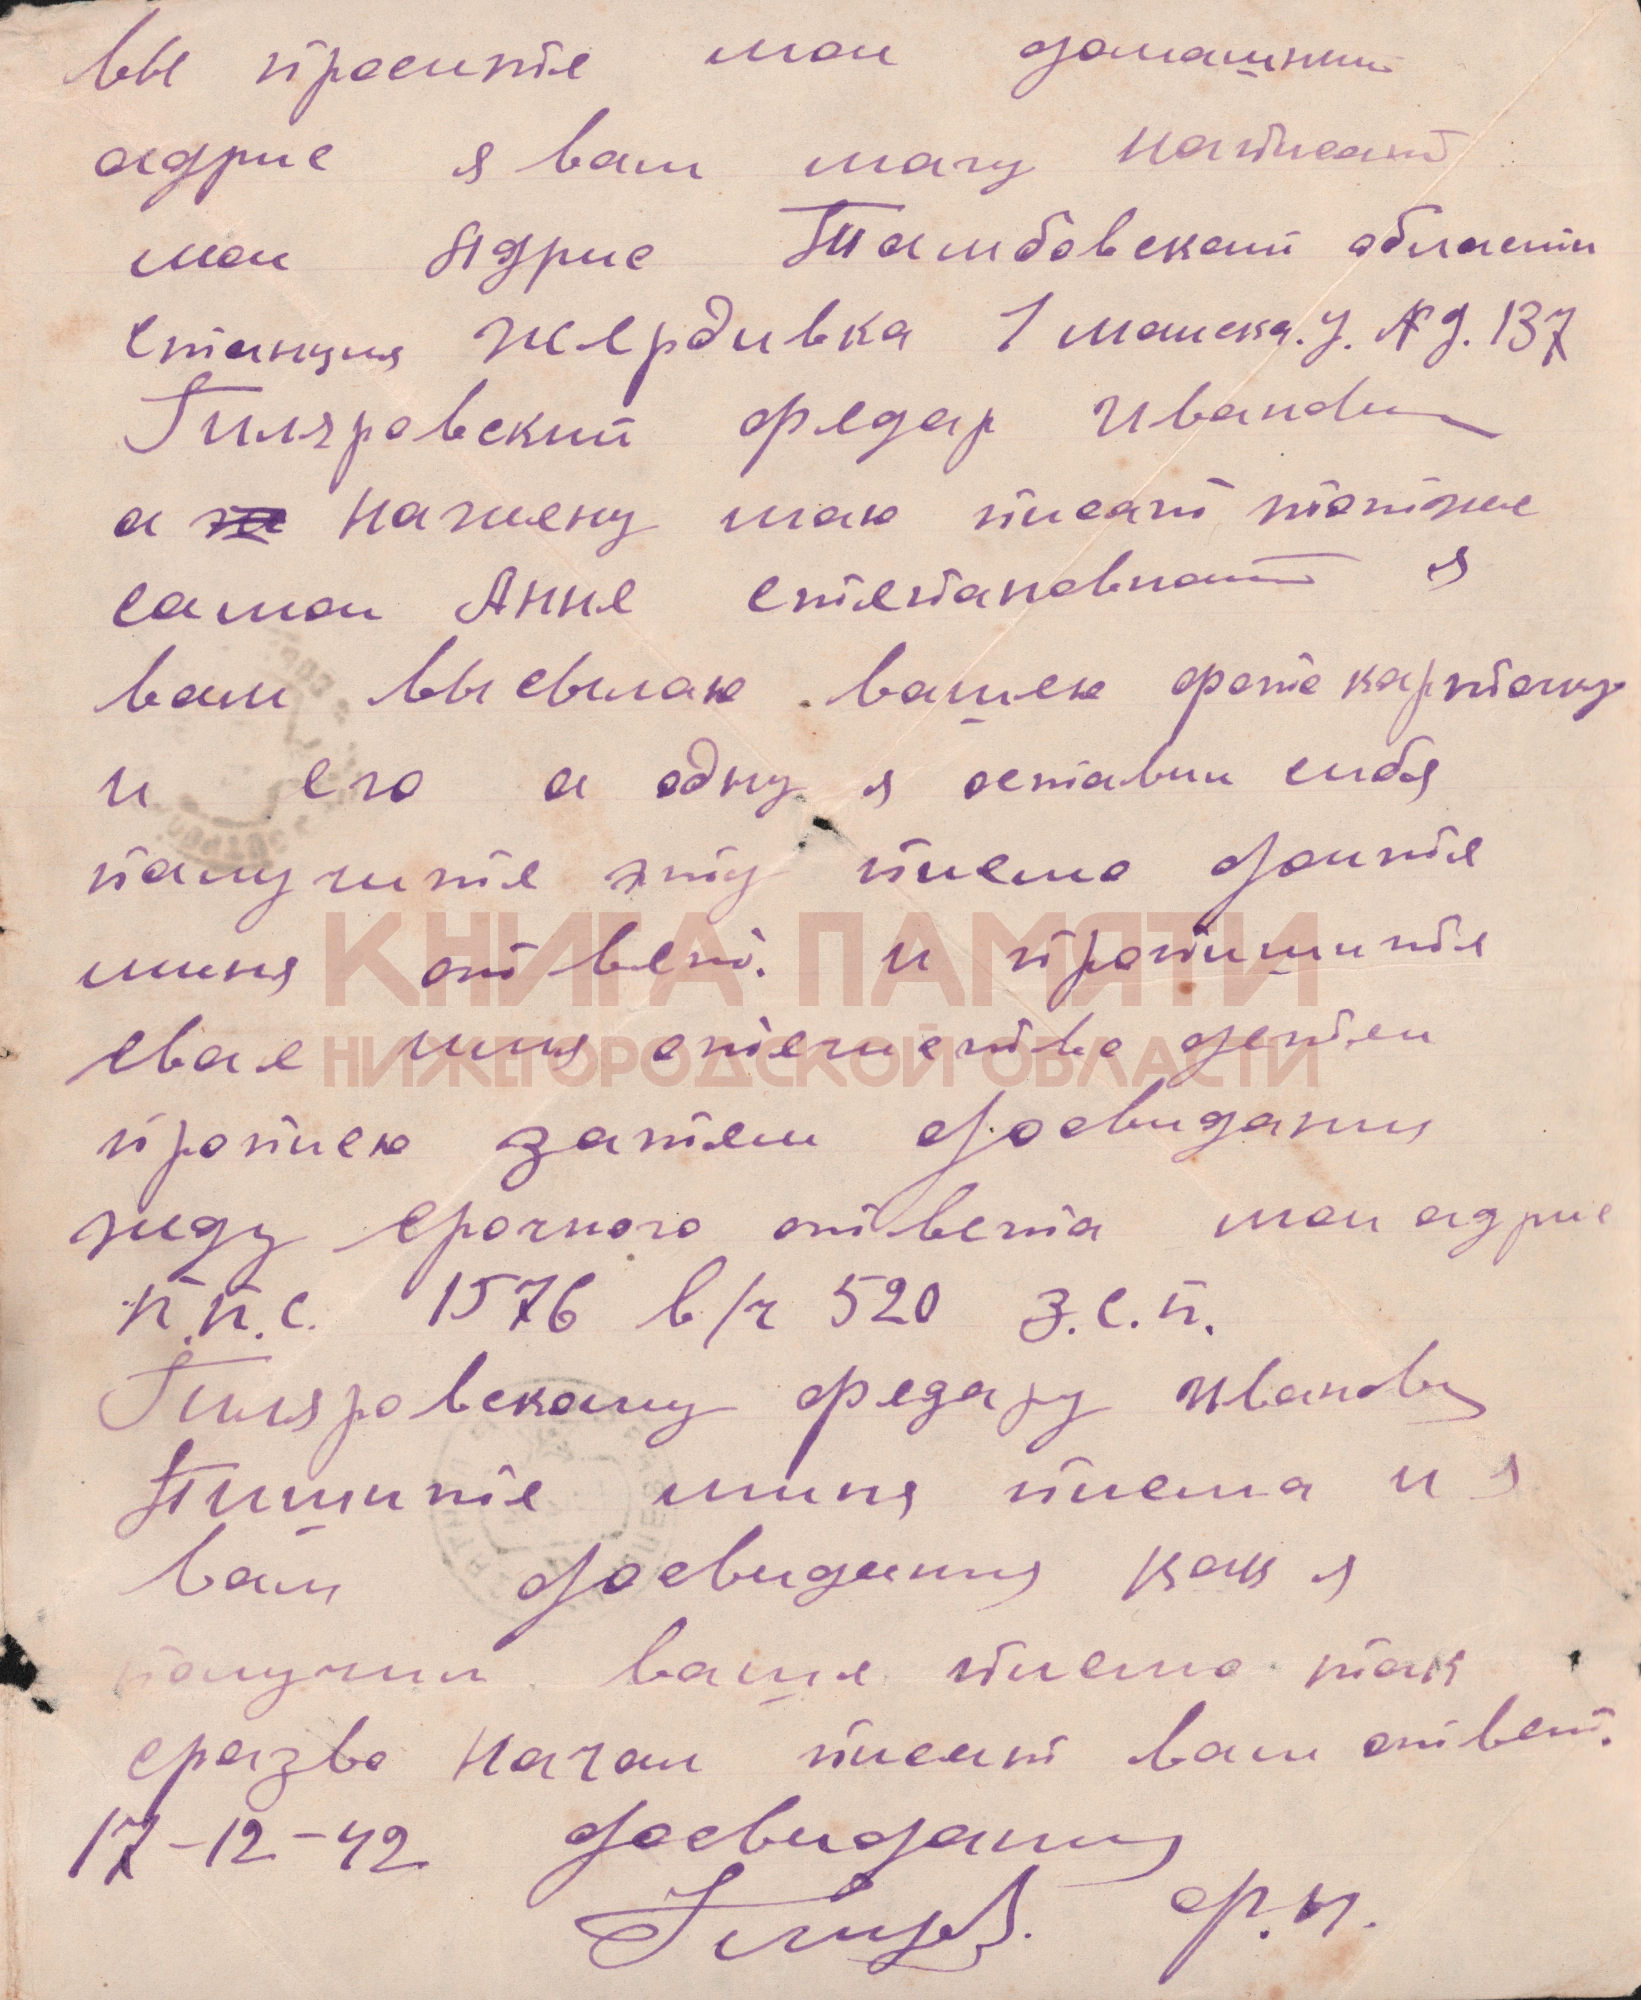 вы проситe маи домашнии
адрис я вам магу написат
маи Адрис Тамбовскаи области
станция жердивка 1 машска. у. № д. 137
Гиляровский федар иванови
а на жену маю писат
самаи Анне степановнаи я
вам высылаю вашею фоте картачку
и его а одну я оставил сибя
палучите эту писмо дайте
миня ответ. и пропишите
свае имя отечество детеи
прописю затем досвидания
жду срочного ответа маи адрис
п.п.с. 1576 в/ч 520 з.с.п.
Гиляровскаму федару иванови
Пишите миня писма и я
вам досвидания как я
палучил ваше писмо так
сразво начал писат вам ответ.
17-12-42 досвидания
Ф.И.
КНИГА ПАМЯТИ
НИЖЕГОРОДСКОЙ ОБЛАСТИ